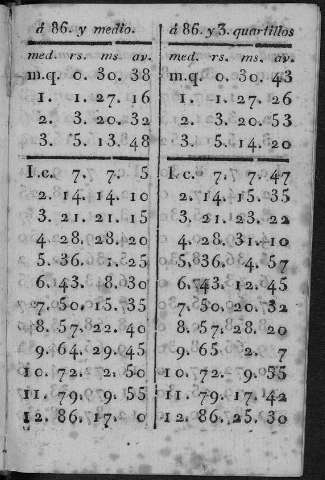 á 86. y medio.
med. rs. ms. av.
m.q. 0. 30. 38
1. 1. 27. 16
2. 3. 20. 32
3. 5. 13. 48
I.c. 7. 7. 5
2. 14. 14. 10
3. 21. 21. 15
4. 28. 28. 20
5. 36. 1. 25
6. 43. 8. 30
7. 50. 15. 35
8. 57. 22. 40
9. 64. 29. 45
10. 72. 2. 50
11. 79. 9. 55
12. 86. 17. 0
á 86. y 3. quartillos
med. rs. ms. av.
m.q. 0. 30. 43
1. 1. 27. 26
2. 3. 20. 53
3. 5. 14. 20
I.c. 7. 7. 47
2. 14. 15. 35
3. 21. 23. 22
4. 28. 31. 10
5. 36. 4. 57
6. 43. 12. 45
7. 50. 20. 32
8. 57. 28. 20
9. 65 2. 7
10. 72. 9. 55
11. 79. 17. 42
12. 86. 25. 30